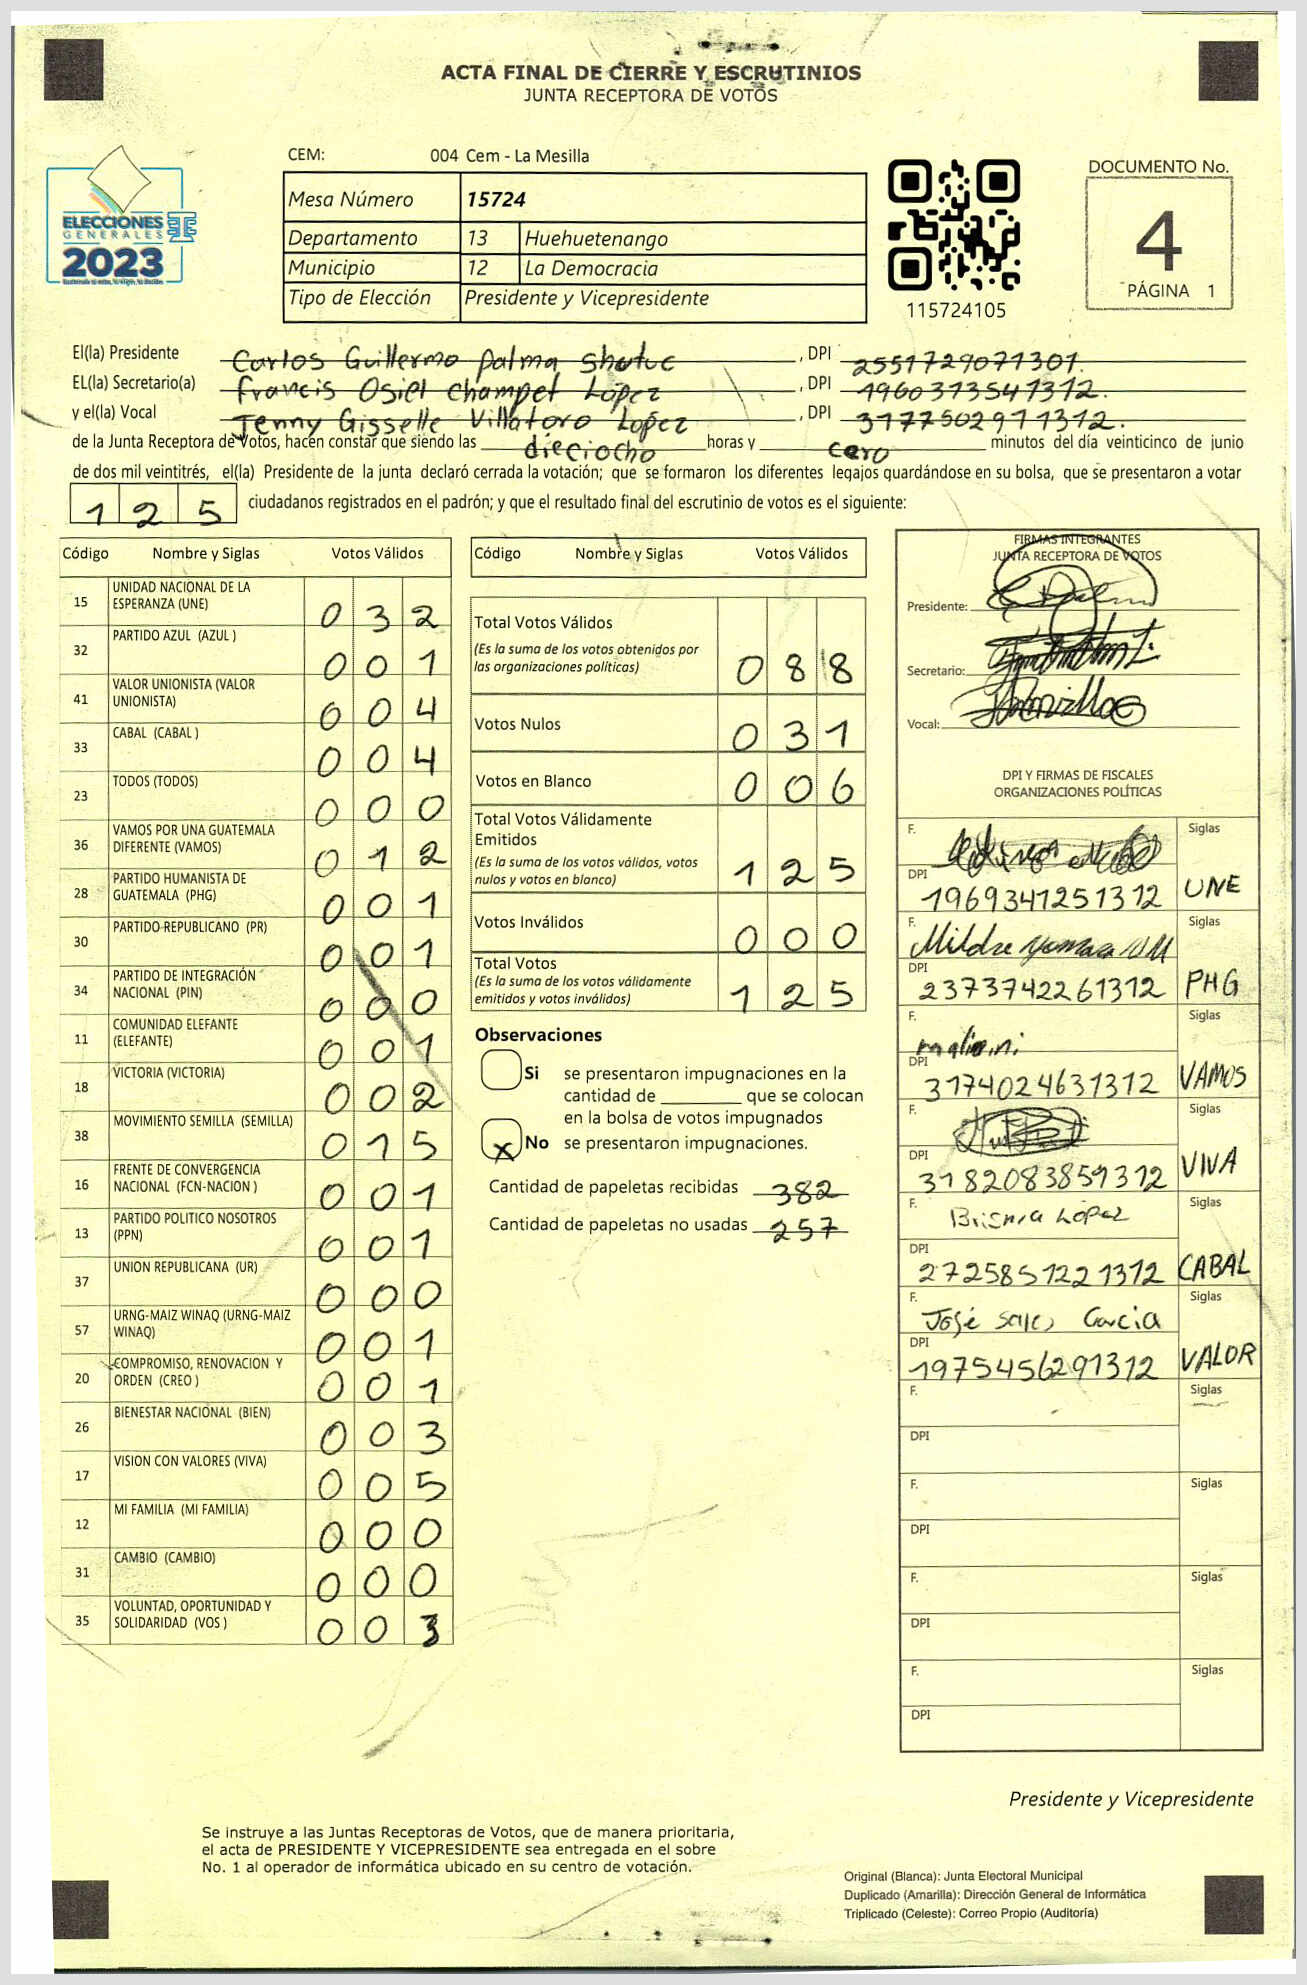 ACTA FINAL DE CIERRE Y ESCRUTINIOS
JUNTA RECEPTORA DE VOTOS
CEM: 004 Cem - La Mesilla
Mesa Número 15724
Departamento 13 Huehuetenango
Municipio 12 La Democracia
Tipo de Elección Presidente y Vicepresidente
ELECCIONES
GENERALES
2023
115724105
DOCUMENTO No.
4
PÁGINA 1
El(la) Presidente Carlos Guillermo Palma Shutuc, DPI 2551729071301.
EL(la) Secretario(a) Francis Osiel Champet López, DPI 1960373541312.
y el(la) Vocal Jenny Gisselle Villatoro Lopez, DPI 3177502971312.
de la Junta Receptora de Votos, hacen constar que siendo las dieciocho horas y cero minutos del día veinticinco de junio
de dos mil veintitrés, el(la) Presidente de la junta declaró cerrada la votación; que se formaron los diferentes legajos guardándose en su bolsa, que se presentaron a votar
125 ciudadanos registrados en el padrón; y que el resultado final del escrutinio de votos es el siguiente:
Código Nombre y Siglas Votos Válidos
15 UNIDAD NACIONAL DE LA ESPERANZA (UNE) 032
32 PARTIDO AZUL (AZUL ) 001
41 VALOR UNIONISTA (VALOR UNIONISTA) 004
33 CABAL (CABAL ) 004
23 TODOS (TODOS) 000
36 VAMOS POR UNA GUATEMALA DIFERENTE (VAMOS) 012
28 PARTIDO HUMANISTA DE GUATEMALA (PHG) 001
30 PARTIDO REPUBLICANO (PR) 001
34 PARTIDO DE INTEGRACIÓN NACIONAL (PIN) 000
11 COMUNIDAD ELEFANTE (ELEFANTE) 001
18 VICTORIA (VICTORIA) 002
38 MOVIMIENTO SEMILLA (SEMILLA) 015
16 FRENTE DE CONVERGENCIA NACIONAL (FCN-NACION ) 001
13 PARTIDO POLITICO NOSOTROS (PPN) 001
37 UNION REPUBLICANA (UR) 000
57 URNG-MAIZ WINAQ (URNG-MAIZ WINAQ) 001
20 COMPROMISO, RENOVACION Y ORDEN (CREO ) 001
26 BIENESTAR NACIONAL (BIEN) 003
17 VISION CON VALORES (VIVA) 005
12 MI FAMILIA (MI FAMILIA) 000
31 CAMBIO (CAMBIO) 000
35 VOLUNTAD, OPORTUNIDAD Y SOLIDARIDAD (VOS ) 003
Código Nombre y Siglas Votos Válidos
Total Votos Válidos
(Es la suma de los votos obtenidos por
las organizaciones políticas) 088
Votos Nulos 031
Votos en Blanco 006
Total Votos Válidamente
Emitidos
(Es la suma de los votos válidos, votos
nulos y votos en blanco) 125
Votos Inválidos 000
Total Votos
(Es la suma de los votos válidamente
emitidos y votos inválidos) 125
Observaciones
Si se presentaron impugnaciones en la
cantidad de ________ que se colocan
en la bolsa de votos impugnados
X No se presentaron impugnaciones.
Cantidad de papeletas recibidas 382
Cantidad de papeletas no usadas 257
FIRMAS INTEGRANTES
JUNTA RECEPTORA DE VOTOS
Presidente:
Secretario:
Vocal:
DPI Y FIRMAS DE FISCALES
ORGANIZACIONES POLÍTICAS
F. Siglas
DPI 1969341251312 UNE
F. Siglas
DPI 2373742261312 PHG
F. Siglas
DPI 3174024631312 VAMOS
F. Siglas
DPI 3182083859312 VIVA
F. López Siglas
DPI 2725851221312 CABAL
F. José García Siglas
DPI 1975456291312 VALOR
F. Siglas
DPI
F. Siglas
DPI
F. Siglas
DPI
F. Siglas
DPI
Presidente y Vicepresidente
Se instruye a las Juntas Receptoras de Votos, que de manera prioritaria,
el acta de PRESIDENTE Y VICEPRESIDENTE sea entregada en el sobre
No. 1 al operador de informática ubicado en su centro de votación.
Original (Blanca): Junta Electoral Municipal
Duplicado (Amarilla): Dirección General de Informática
Triplicado (Celeste): Correo Propio (Auditoría)